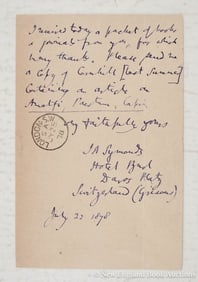 I received today a packet of books
& journals from you, for which
many thanks. Please send me
a copy of Cornhill [last Summer]
Containing an article on
Amalfi Paestum, Capri
Very faithfully yours
LONDON S.W
JY 25
78
J A Symonds
Hotel Buol
Davos Platz
Switzerland (Grisons)
July 22 1878
New England Book Auctions